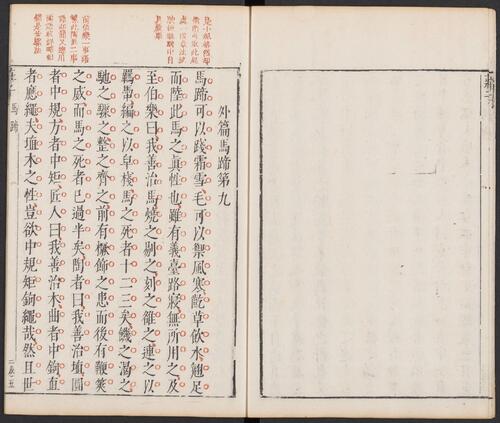 外篇馬蹄第九
馬蹄可以踐霜雪毛可以禦風寒齕草飲水翹足
而陸此馬之眞性也雖有義臺路寢無所用之及
至伯樂曰我善治馬燒之剔之刻之雒之連之以
羈馽編之以皁棧馬之死者十二三矣饑之渴之
馳之驟之整之齊之前有橛飾之患而後有鞭筴
之威而馬之死者已過半矣陶者曰我善治埴圓
者中規方者中矩匠人曰我善治木曲者中鉤直
者應繩夫埴木之性豈欲中規矩鉤繩哉然且世
馬蹄